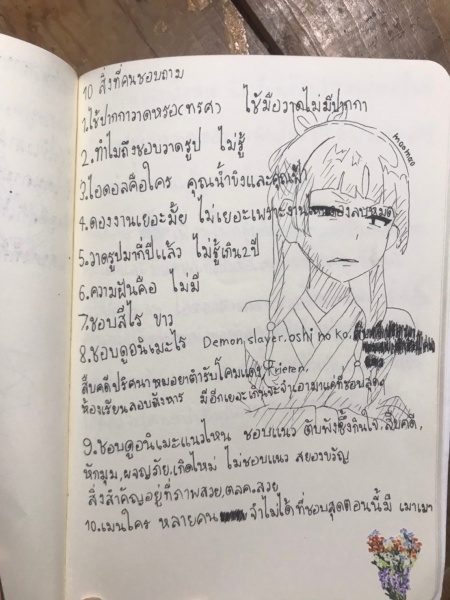 10 สิ่งที่คนชอบถาม
1.ใช้ปากกาวาดหรอ(ทรศ) ใช้มือวาดไม่มีปากกา
2.ทำไมถึงชอบวาดรูป ไม่รู้
3.ไอดอลคือใคร คุณน้ำขิงและคุณ
4.ดองงานเยอะมั้ย ไม่เยอะเพราะงาน
5.วาดรูปมากี่ปีแล้ว ไม่รู้เกิน2ปี
6.ความฝันคือ ไม่มี
7.ชอบสีไร ขาว
8.ชอบดูอนิเมะไร Demon slayer, oshi no ko,
สืบคดีปริศนาหมอยาตำรับโคมแดง, Frieren,
ห้องเรียนลอบสังหาร มีอีกเยอะเกินจะจำเอามาแค่ที่ชอบสุด
9.ชอบดูอนิเมะแนวไหน ชอบแนว ตับพังซึ้งกินใจ,สืบคดี,
หักมุม,ผจญภัย,เกิดใหม่ ไม่ชอบแนว สยองขวัญ
สิ่งสำคัญอยู่ที่ภาพสวย,ตลก,สวย
10.เมนใคร หลายคน จำไม่ได้ที่ชอบสุดตอนนี้มี เมาเมา
maomao